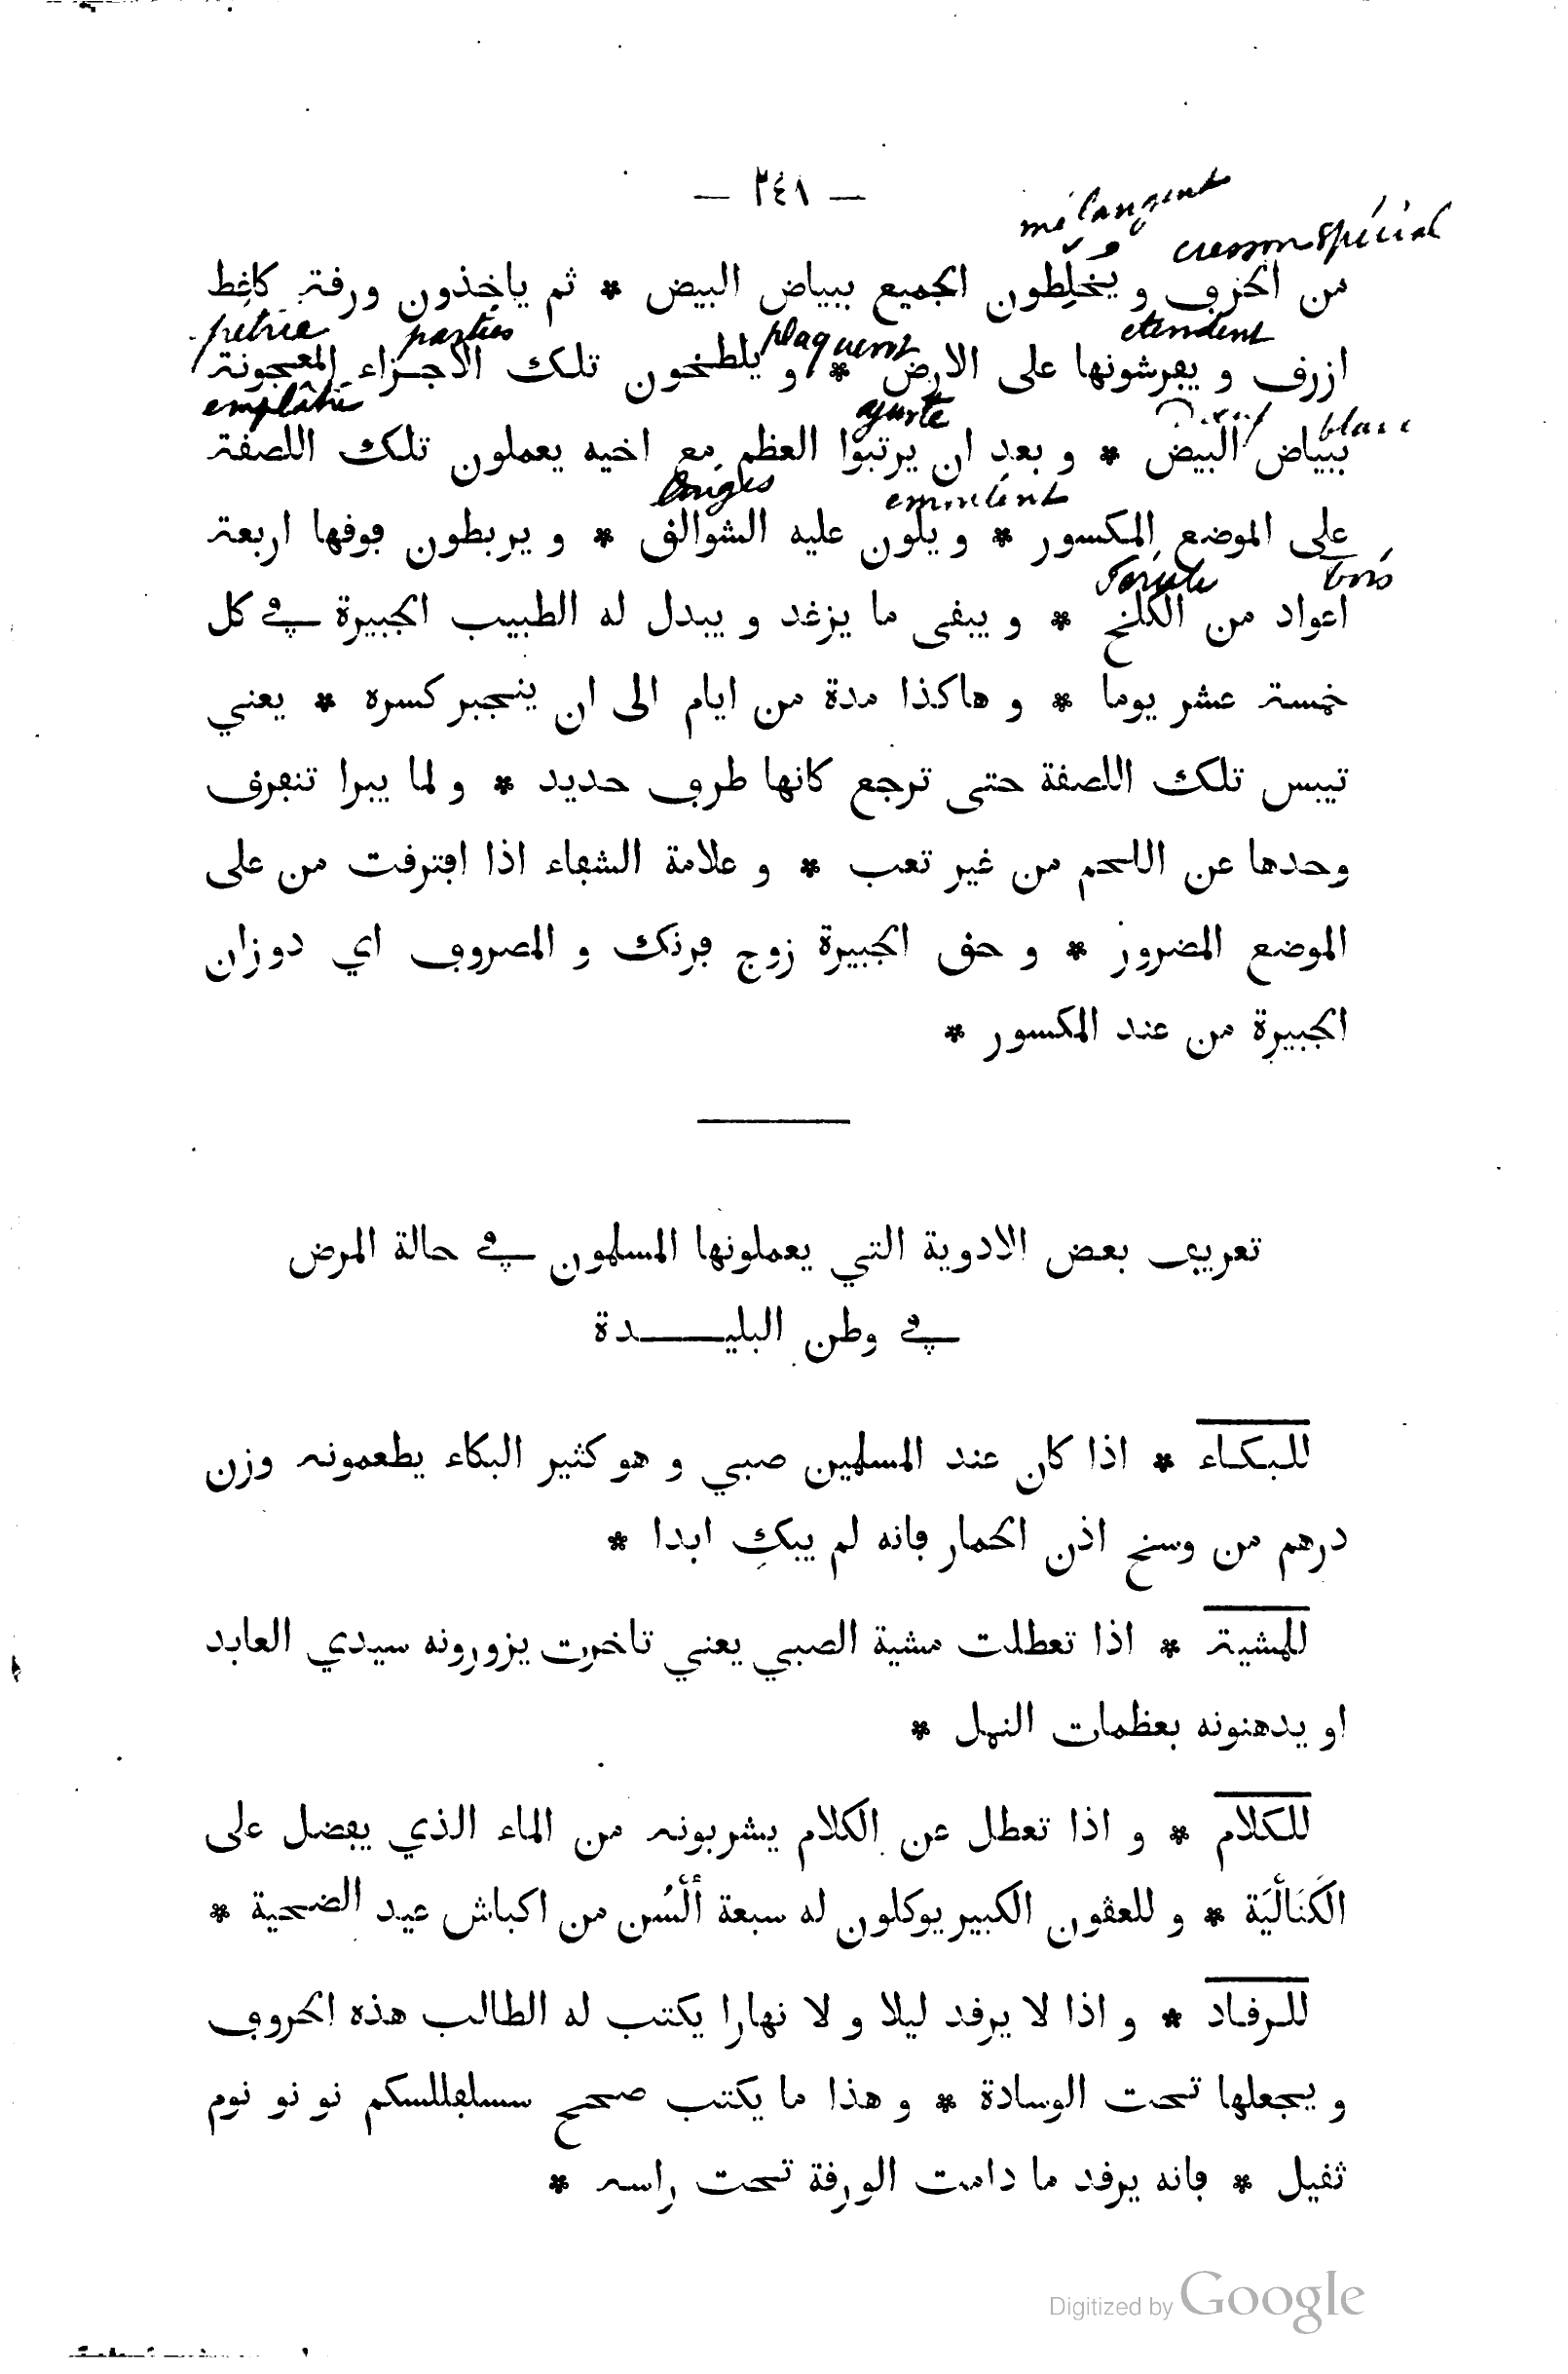 — ٢٤١ —
mélangent
cresson spécial
من الحرف و يُخلِّطون الجميع ببياض البيض * ثم ياخذون ورقة كاغِط
étendent
plaquent
parties
pétrie
ازرق و يفرشونها على الارض * و يلطخون تلك الاجزاء المعجونة
blanc
ajusté
emplâtre
ببياض البيض * و بعد ان يرتبوا العظم مع اخيه يعملون تلك اللصقة
على الموضع المكسور * و يلون عليه الشوالق * و يربطون فوقها اربعة
bois
férule
اعواد من الكلخ * و يبقى ما يزغد و يبدل له الطبيب الجبيرة في كل
خمسة عشر يوما * و هاكذا مدة من ايام الى ان ينجبر كسره * يعني
تيبس تلك اللصقة حتى ترجع كانها طرف حديد * و لما يبرا تنفرق
وحدها عن اللحم من غير تعب * و علامة الشفاء اذا افترقت من على
الموضع المضرور * و حق الجبيرة زوج فرنك و المصروف اي دوزان
الجبيرة من عند المكسور *
تعريف بعض الادوية التي يعملونها المسلمون في حالة المرض
في وطن البليدة
للبكاء * اذا كان عند المسلمين صبي و هو كثير البكاء يطعمونه وزن
درهم من وسخ اذن الحمار فانه لم يبكِ ابدا *
للمشية * اذا تعطلت مشية الصبي يعني تاخرت يزورونه سيدي العابد
او يدهنونه بعظمات النمل *
للكلام * و اذا تعطل عن الكلام يشربونه من الماء الذي يفضل على
الكَنَالْيَة * و للعقون الكبير يوكلون له سبعة ألْسُن من اكباش عيد الضحية *
للرقاد * و اذا لا يرقد ليلا و لا نهارا يكتب له الطالب هذه الحروف
و يجعلها تحت الوسادة * و هذا ما يكتب صحح سسلفللسكم نو نو نوم
ثقيل * فانه يرقد ما دامت الورقة تحت راسه *
Digitized by Google